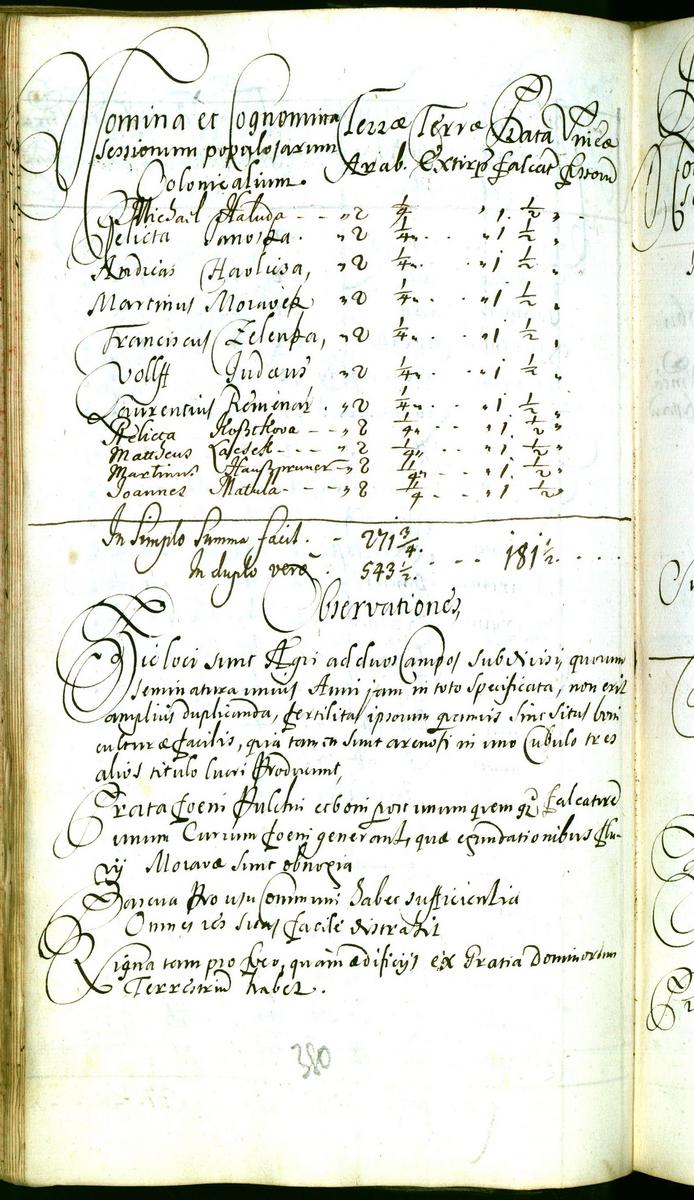 Nomina et Cognomina Terræ Terræ Prata Vineæ
sessionum populosarum Arab. Extirp. falcat. fossorum
Colonicalium.
Michael Haluda - - „ 2 1/4 „ 1. 1/2 „
Relicta Janoska. „ 2 1/4 „ 1 1/2 „
Andreas Havlica, „ 2 1/4 „ 1 1/2 „
Martinus Moravek „ 2 1/4 „ 1 1/2 „
Franciscus Zelenka, „ 2 1/4 „ 1 1/2 „
Volff Judæus „ 2 1/4 „ 1 1/2 „
Laurentius Remenar. „ 2 1/4 „ 1 1/2 „
Relicta - - „ 2 1/4 „ 1. 1/2 „
Mattheus - - „ 2 1/4 „ 1. 1/2 „
Martinus - „ 2 1/4 „ 1. 1/2 „
Joannes Matula - - „ 2 1/4 „ 1. 1/2 „
In Simplo Summa facit. - 271 3/4. - - - 181 1/2. - - -
In duplo vero. 543 1/2.
Observationes,
Hic loci sunt Agri ad duos Campos subdivisi, quorum
seminatura unius Anni jam in toto specificata, non erit
amplius duplicanda, fertilitas ipsorum quamvis sint situs boni
culturæ facilis, quia tamen sunt arenosi in uno Cubulo tres
alios titulo lucri Producunt,
Prata foeni Pulchri et boni unum falcatura
unum Currum foeni generant, quæ exundationibus flu-
vij Moravæ sunt obnoxia
Pascua Pro usu Communi habet sufficientia
Omnes res suas facile distrahit
Ligna tam pro foco, quam ædificijs ex Gratia Dominorum
Terrestrium habet.
380